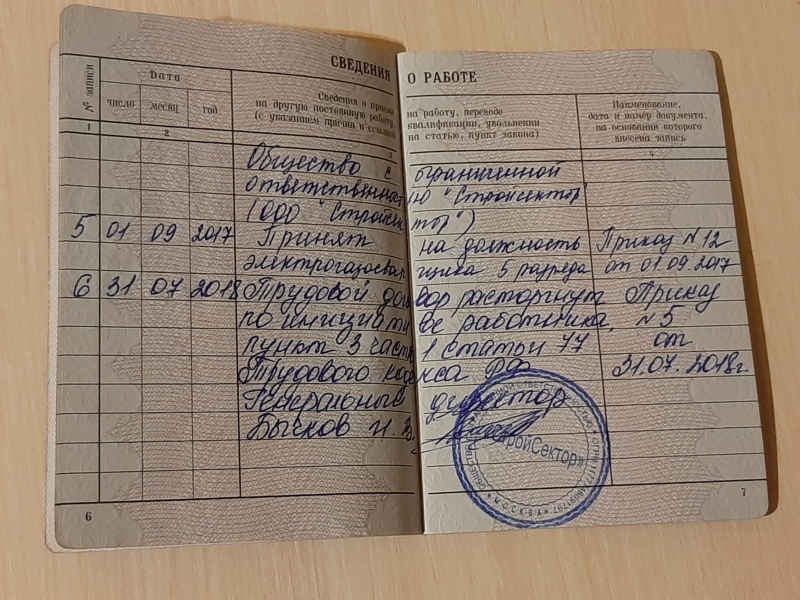 СВЕДЕНИЯ О РАБОТЕ
№ записи
Дата
число месяц год
Сведения о приеме на работу, переводе
на другую постоянную работу, квалификации, увольнении
(с указанием причин и ссылкой на статью, пункт закона)
Наименование,
дата и номер документа,
на основании которого
внесена запись
1 2 3 4
Общество с ограниченной
ответственностью "Стройсектор"
(ООО "Стройсектор")
5 01 09 2017 Принят на должность Приказ N 12
электрогазосварщика 5 разряда от 01.09.2017
6 31 07 2018 Трудовой договор расторгнут Приказ
по инициативе работника, N5
пункт 3 часть 1 статьи 77 от
Трудового кодекса РФ 31.07.2018г.
Генеральный директор
Бычков И.В.
«СтройСектор»
* МОСКВА *
6
7